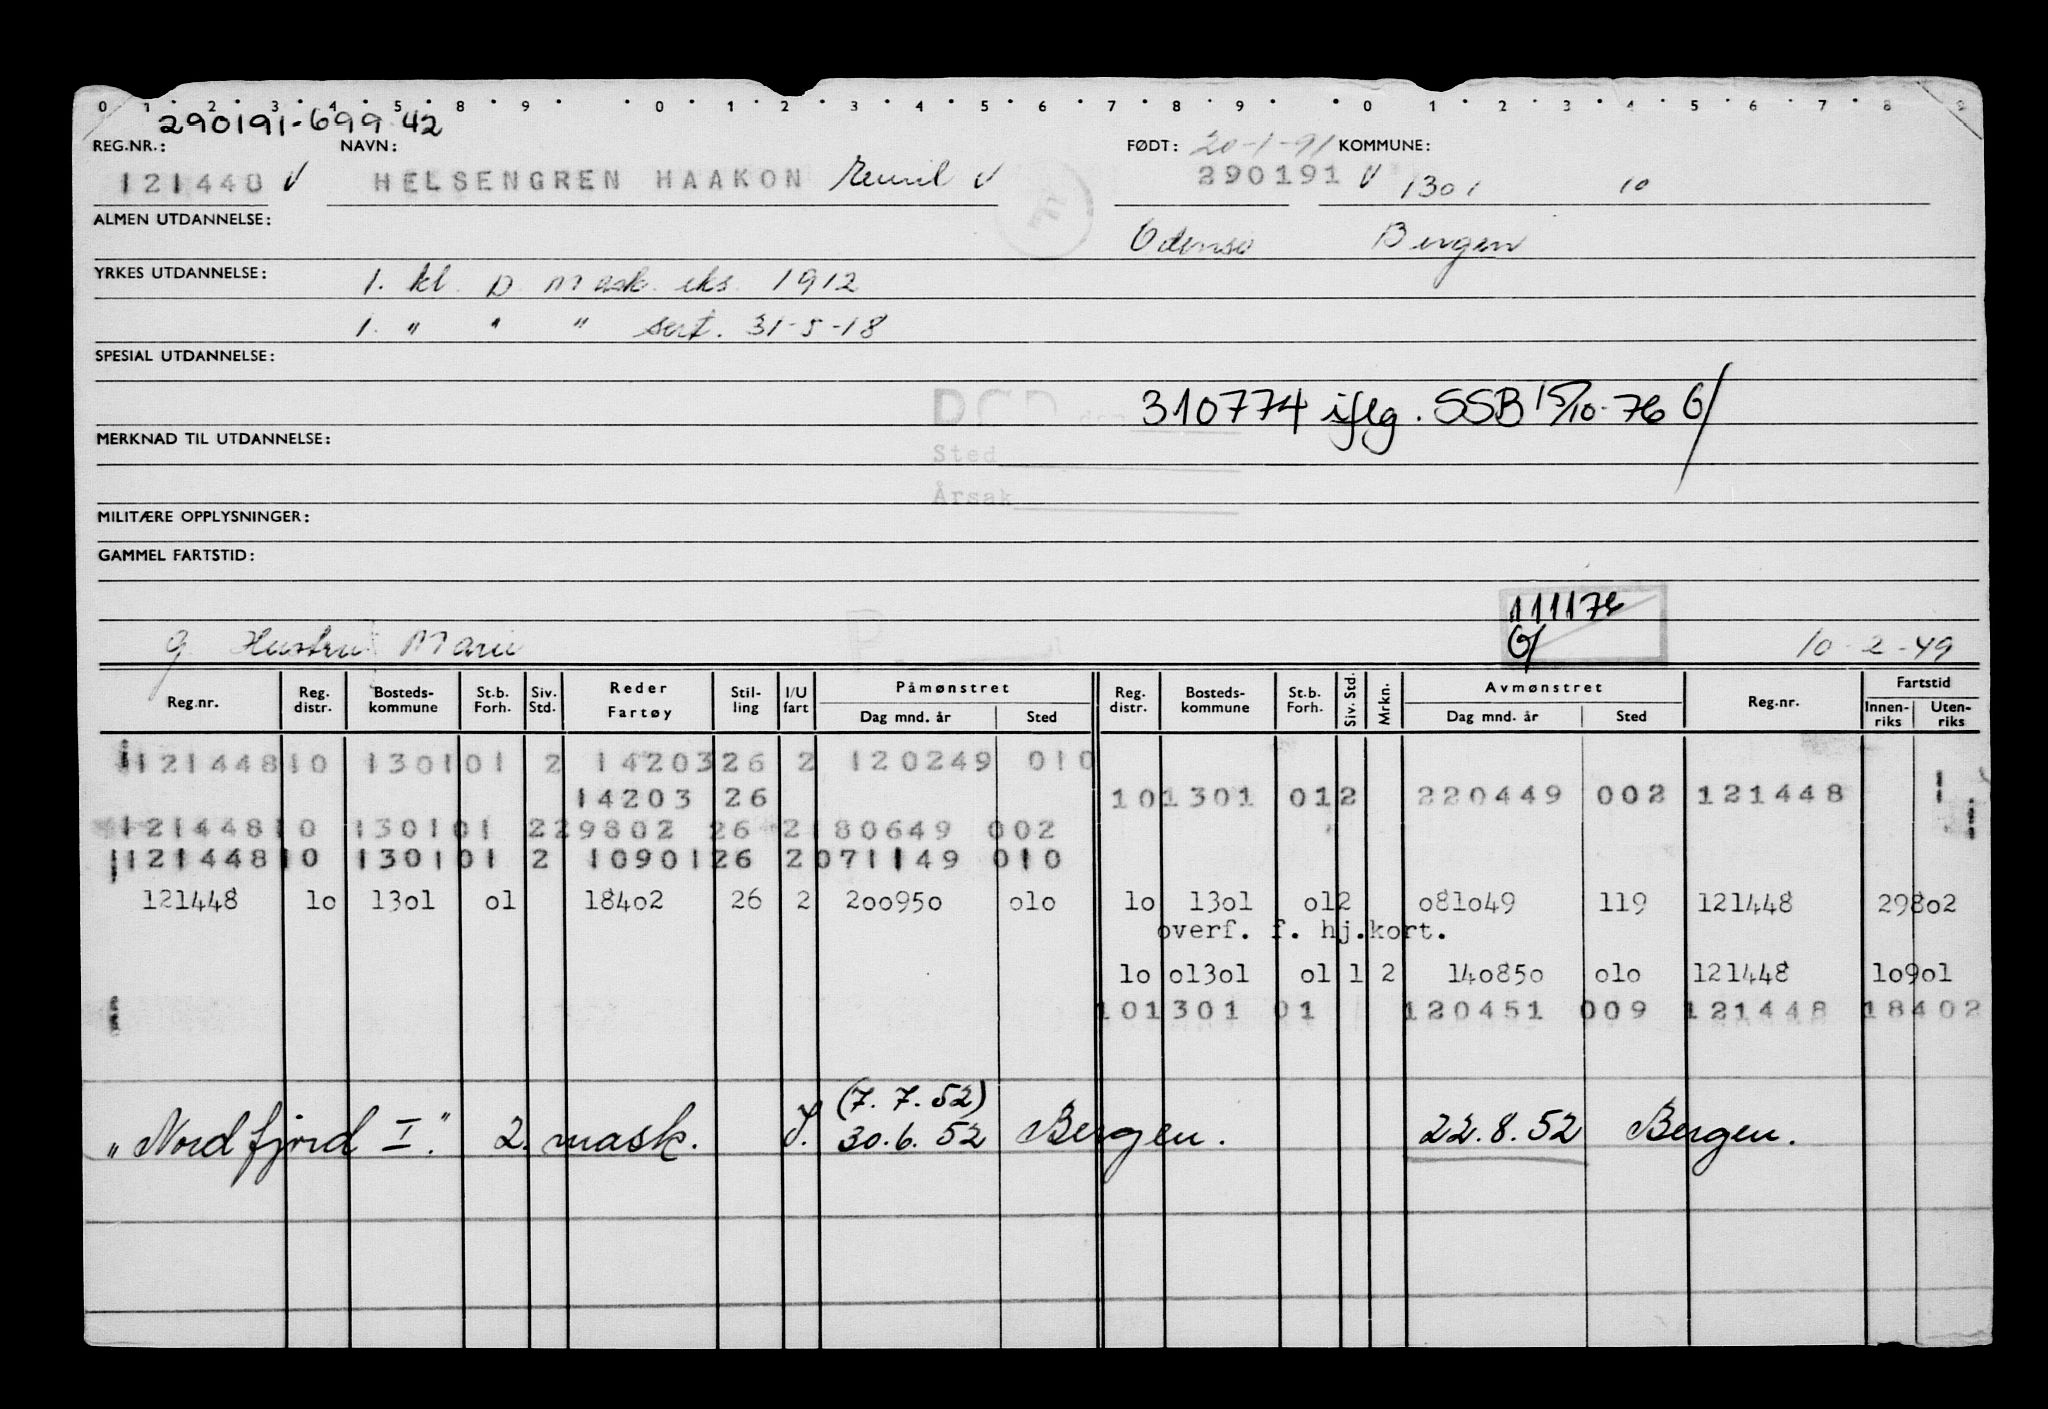 0 1 2 3 4 5 8 9 0 1 2 3 4 5 6 7 8 9 0 1 2 3 4 5 6 7 8 9
290191-699 42
REG.NR.: NAVN: FØDT: 20-1-91 KOMMUNE:
121448 V HELSENGREN HAAKON V 290191 V 1301 10
ALMEN UTDANNELSE: Odense Bergen
YRKES UTDANNELSE: 1. kl. D Mask. eks. 1912
1. " " " sert. 31-5-18
SPESIAL UTDANNELSE:
310774 iflg. SSB 15/10-76 G/
MERKNAD TIL UTDANNELSE:
Sted
Årsak
MILITÆRE OPPLYSNINGER:
GAMMEL FARTSTID:
111176
G/
g Hustru Marie 10-2-49
Reg.nr. Reg. distr. Bosteds- kommune St.b. Forh. Siv. Std. Reder Fartøy Stil- ling I/U fart Påmønstret Dag mnd. år Sted Reg. distr. Bosteds- kommune St.b. Forh. Siv. Std. Mrkn. Avmønstret Dag mnd. år Sted Reg.nr. Fartstid Innen- riks Uten- riks
121448 10 1301 01 2 14203 26 2 120249 010
14203 26 10 1301 01 2 220449 002 121448 1
121448 10 1301 01 2 29802 26 2 180649 002
121448 10 1301 01 2 10901 26 2 071149 010
121448 10 1301 01 18402 26 2 200950 010 10 1301 01 2 081049 119 121448 29802
overf. f. hj.kort.
10 01301 01 1 2 140850 010 121448 10901
10 1301 01 120451 009 121448 18402
(7.7.52)
"Nordfjord I." 2. mask. J. 30.6.52 Bergen. 22.8.52 Bergen.